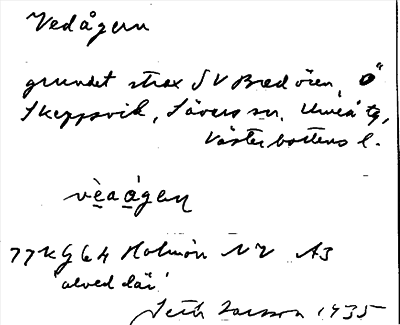 Vedågern
grundet strax SV Bredören, Ö
Skeppsvik, Sävers sn, Umeå tg,
Västerbottens l.
vèaágen
77KG64 Holmön NV A3
alved där
Seth Larsson 1935